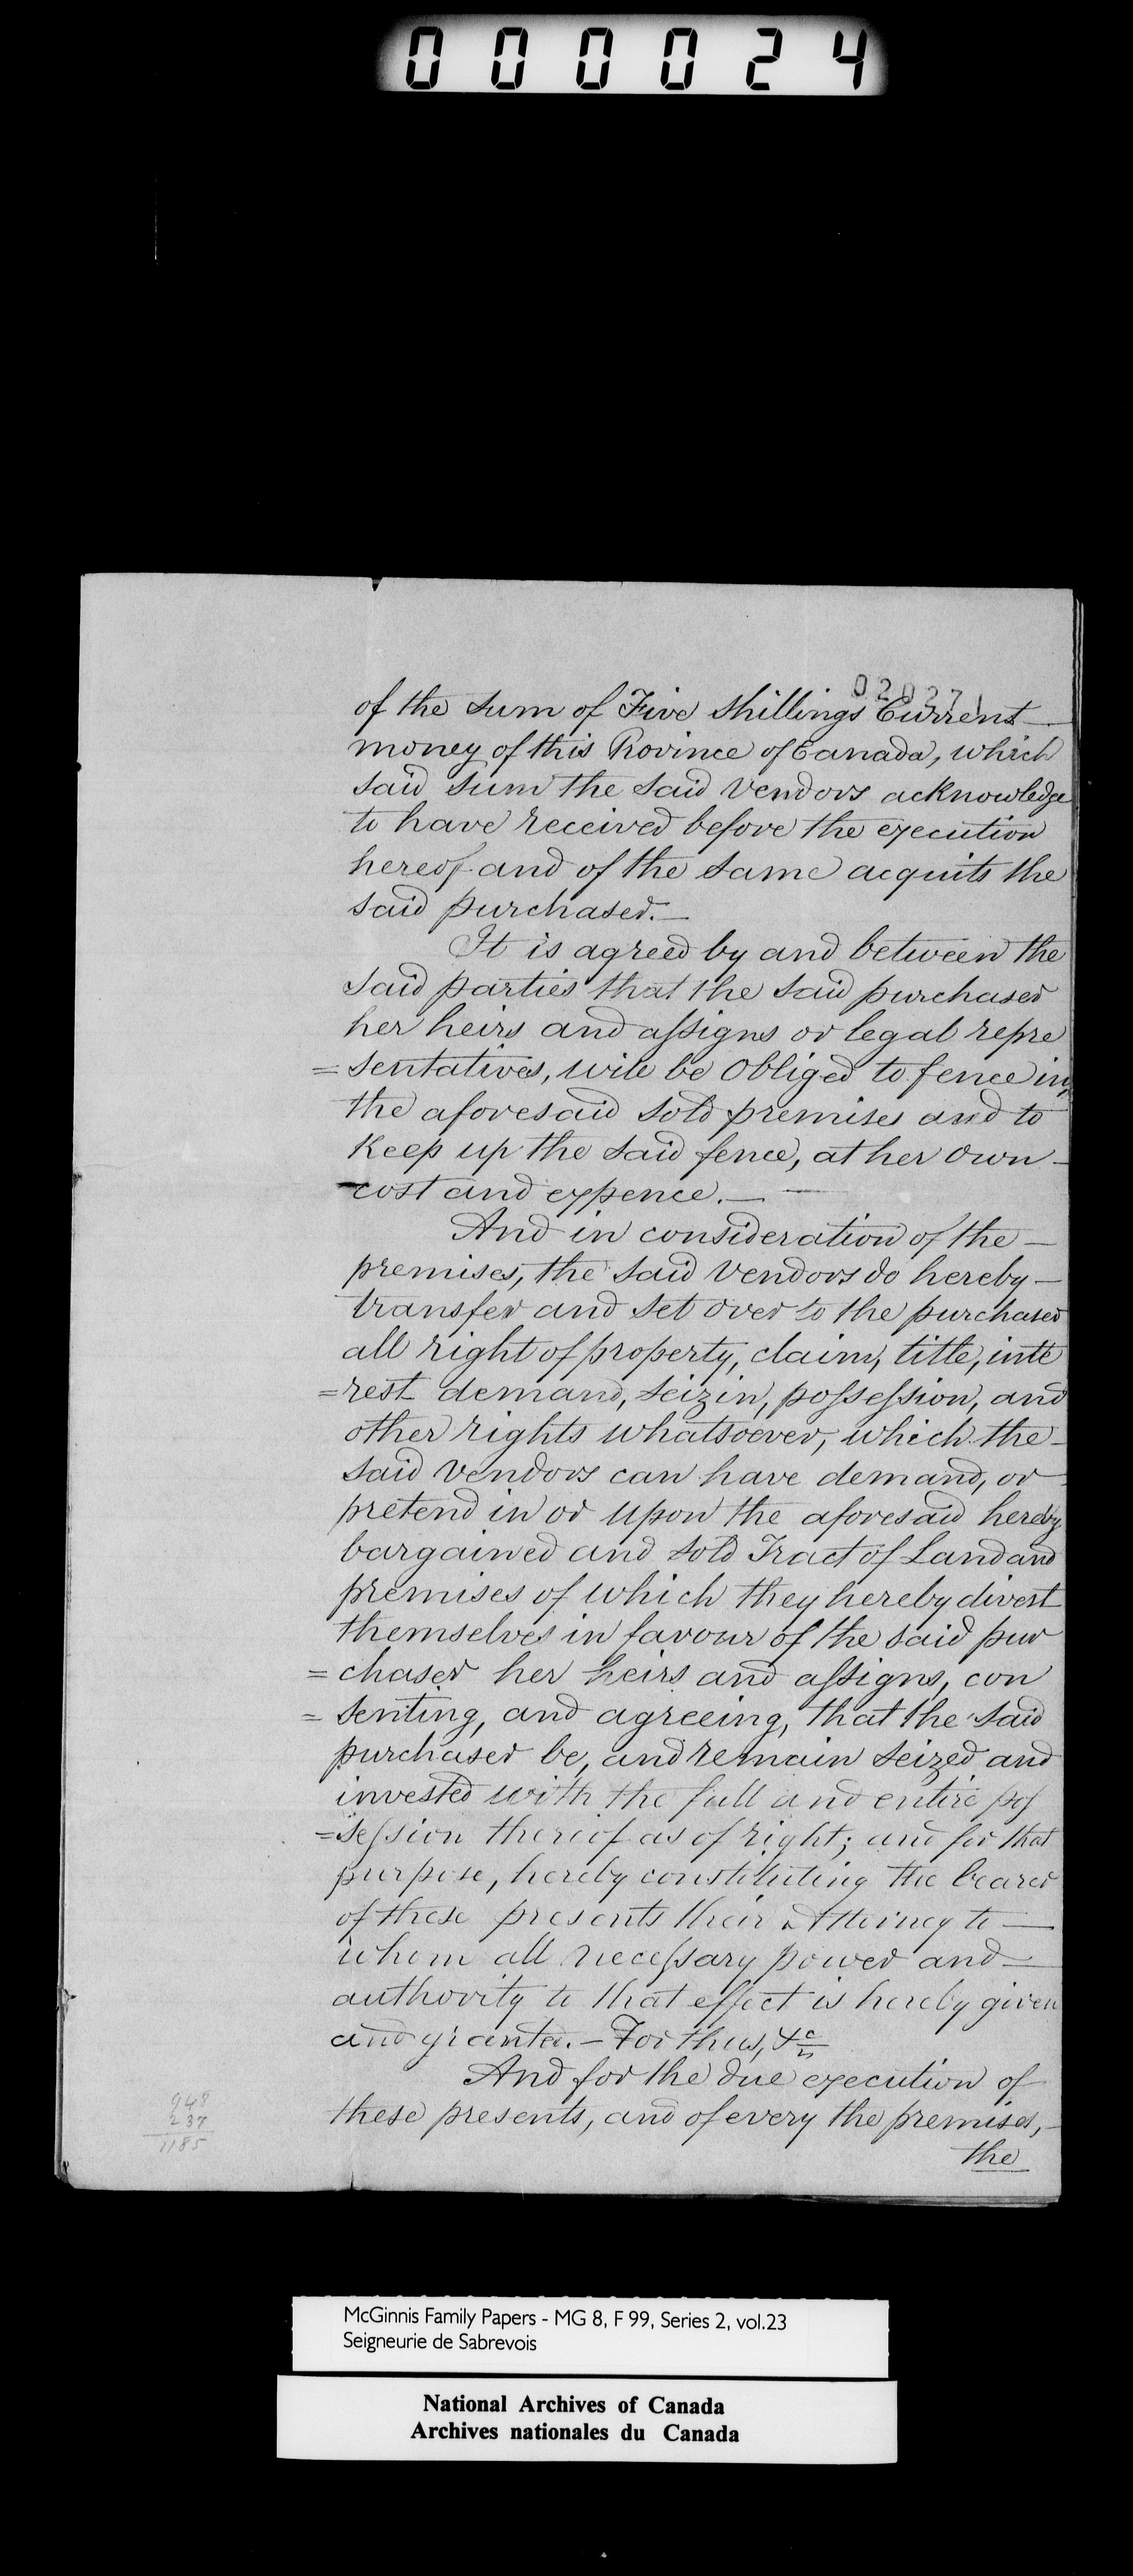 000024
02027
of the sum of Five Shillings Current—
money of this Province of Canada, which
said sum the said Vendors acknowledge
to have received before the execution
hereof and of the same acquits the
said purchaser.—
It is agreed by and between the
said parties that the said purchaser
her heirs and assigns or legal repre
=sentatives, will be obliged to fence in,
the aforesaid sold premises and to
Keep up the said fence, at her own—
cost and expence.—
And in consideration of the—
premises, the said Vendors do hereby—
transfer and set over to the purchaser
all right of property, claim, title, inte
=rest demand, seizin, possession, and
other rights whatsoever, which the—
said Vendors can have demand, or
pretend in or upon the aforesaid hereby
bargained and sold Tract of Land and
premises of which they hereby divest
themselves in favour of the said pur
=chaser her heirs and assigns, con
=senting, and agreeing, that the said
purchaser be, and remain seized and
invested with the full and entire pos
=session thereof as of right; and for that
purpose, hereby constituting the bearer
of these presents their Attorney to—
whom all necessary power and—
authority to that effect is hereby given
and granted.— For thus, &c
And for the due execution of
these presents, and of every the premises,—
the
948
237
1185
McGinnis Family Papers - MG 8, F 99, Series 2, vol.23
Seigneurie de Sabrevois
National Archives of Canada
Archives nationales du Canada